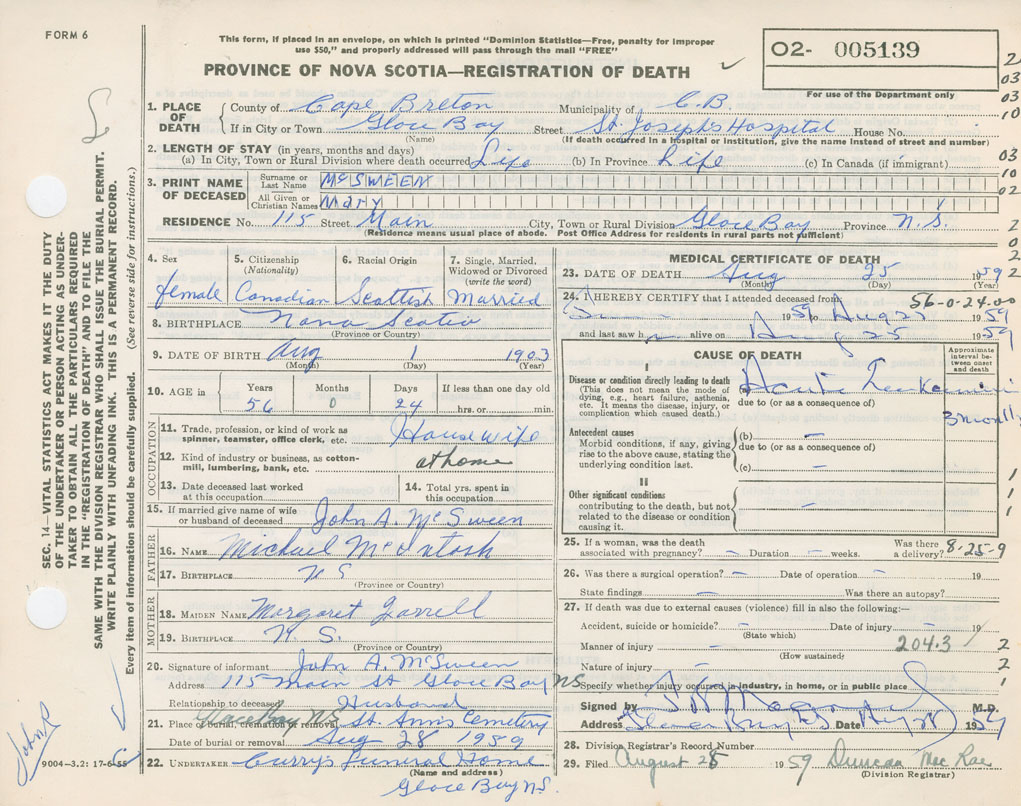 FORM 6
This form, if placed in an envelope, on which is printed "Dominion Statistics—Free, penalty for improper
use $50," and properly addressed will pass through the mail "FREE"
PROVINCE OF NOVA SCOTIA—REGISTRATION OF DEATH
02- 005139
For use of the Department only
SEC. 14—VITAL STATISTICS ACT MAKES IT THE DUTY
OF THE UNDERTAKER OR PERSON ACTING AS UNDER-
TAKER TO OBTAIN ALL THE PARTICULARS REQUIRED
IN THE "REGISTRATION OF DEATH" AND TO FILE THE
SAME WITH THE DIVISION REGISTRAR WHO SHALL ISSUE THE BURIAL PERMIT.
WRITE PLAINLY WITH UNFADING INK. THIS IS A PERMANENT RECORD.
Every item of information should be carefully supplied. (See reverse side for instructions.)
1. PLACE OF DEATH County of Cape Breton Municipality of C.B.
If in City or Town Glace Bay Street St. Joseph's Hospital House No.
(Name) (If death occurred in a hospital or institution, give the name instead of street and number)
2. LENGTH OF STAY (in years, months and days)
(a) In City, Town or Rural Division where death occurred Life (b) In Province Life (c) In Canada (if immigrant)
3. PRINT NAME OF DECEASED Surname or Last Name McSWEEN
All Given or Christian Names Mary
RESIDENCE No. 115 Street Main City, Town or Rural Division Glace Bay Province N.S.
(Residence means usual place of abode. Post Office Address for residents in rural parts not sufficient)
4. Sex female
5. Citizenship (Nationality) Canadian
6. Racial Origin Scottish
7. Single, Married, Widowed or Divorced (write the word) Married
8. BIRTHPLACE Nova Scotia
(Province or Country)
9. DATE OF BIRTH Aug 1 1903
(Month) (Day) (Year)
10. AGE in Years Months Days If less than one day old
56 0 24 hrs. or min.
OCCUPATION
11. Trade, profession, or kind of work as spinner, teamster, office clerk, etc. Housewife
12. Kind of industry or business, as cotton-mill, lumbering, bank, etc. at home
13. Date deceased last worked at this occupation
14. Total yrs. spent in this occupation
15. If married give name of wife or husband of deceased John A. McSween
FATHER
16. NAME Michael McIntosh
17. BIRTHPLACE N S
(Province or Country)
MOTHER
18. MAIDEN NAME Margaret
19. BIRTHPLACE N. S.
(Province or Country)
20. Signature of informant John A. McSween
Address 115 Main St Glace Bay NS
Relationship to deceased Husband
21. Place of burial, cremation or removal Glace Bay NS St. Anns Cemetery
Date of burial or removal Aug 28 1959
22. UNDERTAKER Curry's Funeral Home
(Name and address)
Glace Bay N.S.
9004—3.2: 17-6-55
MEDICAL CERTIFICATE OF DEATH
23. DATE OF DEATH Aug 25 1959
(Month) (Day) (Year)
24. I HEREBY CERTIFY that I attended deceased from 56-0-24.00
1959
and last saw h alive on Aug 25 1959
CAUSE OF DEATH
Approximate interval between onset and death
I
Disease or condition directly leading to death (a) Acute
(This does not mean the mode of dying, e.g., heart failure, asthenia, etc. It means the disease, injury, or complication which caused death.)
due to (or as a consequence of)
3 months
Antecedent causes (b) —
Morbid conditions, if any, giving rise to the above cause, stating the underlying condition last.
due to (or as a consequence of)
(c) —
II
Other significant conditions contributing to the death, but not related to the disease or condition causing it. —
25. If a woman, was the death associated with pregnancy? — Duration — weeks. Was there a delivery? 8-25-9
26. Was there a surgical operation? — Date of operation — 19
State findings — Was there an autopsy?
27. If death was due to external causes (violence) fill in also the following:—
Accident, suicide or homicide? — Date of injury — 19
(State which)
Manner of injury — 204.3
(How sustained)
Nature of injury —
Specify whether injury occurred in industry, in home, or in public place
Signed by M.D.
Address Glace Bay Date 1959
28. Division Registrar's Record Number
29. Filed August 28 1959 Duncan Mac Rae
(Division Registrar)